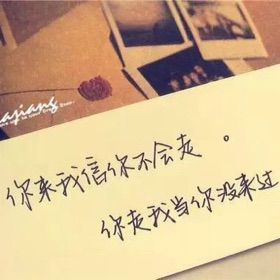 你来我信你不会走。
你走我当你没来过